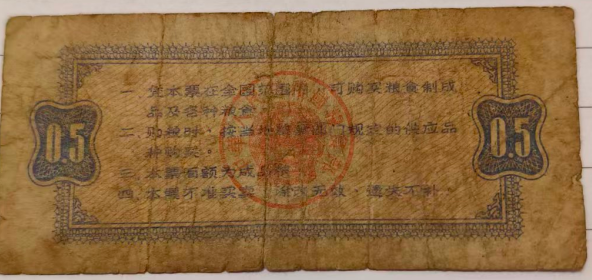 一 凭本票在全国范围内，可购买粮食制成
品及各种粮食。
二、购粮时，按当地粮食部门规定的供应品
种购买。
0.5
0.5
三、本票面额为成品粮
四、本票不准买卖，涂改无效，遗失不补